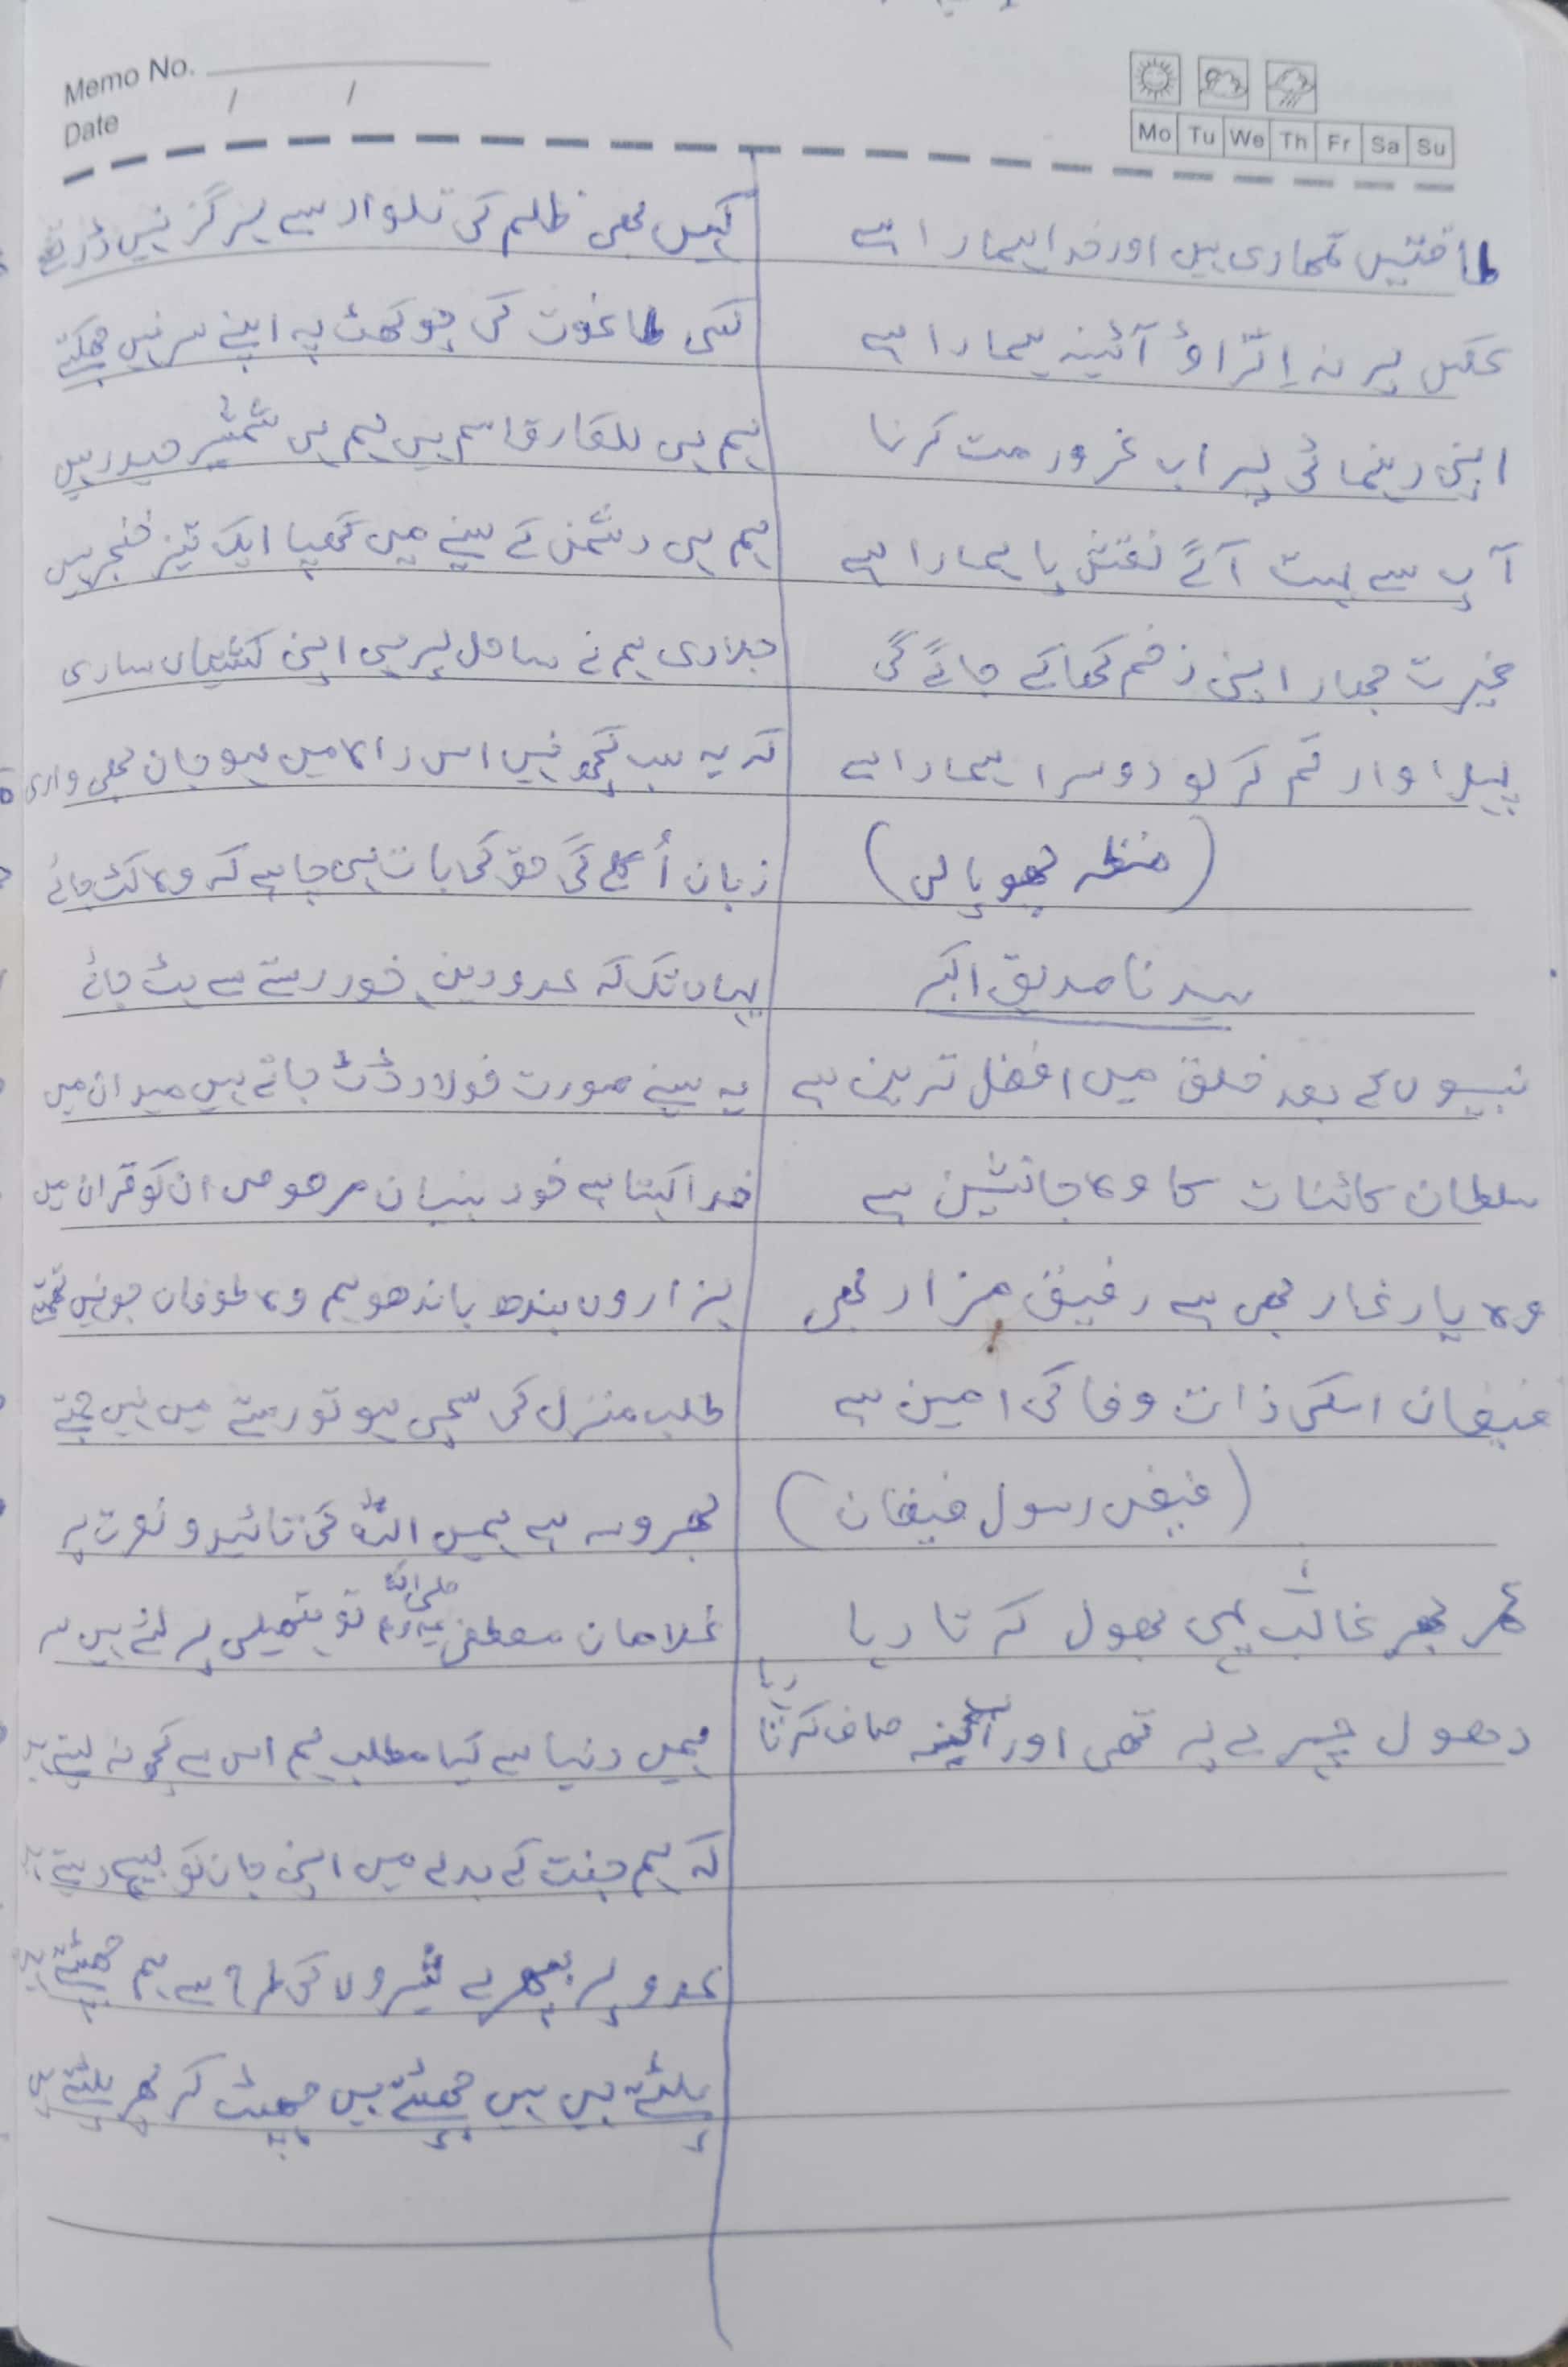 Memo No.
Date / /
Mo Tu We Th Fr Sa Su
طاقتیں تمھاری ہیں اور خدا ہمارا ہے
عکس پر نہ اِتراؤ آئینہ ہمارا ہے
اپنی رہنمائی پر اب غرور مت کرنا
آپ سے بہت آگے نقش پا ہمارا ہے
غیرت جہاد اپنی زخم کھا کے جاگے گی
پہلا وار تم کر لو دوسرا ہمارا ہے
(منظر بھوپالی)
سیدنا صدیق اکبر
نبیوں کے بعد خلق میں افضل ترین ہے
سلطان کائنات کا وہ جانشین ہے
وہ یار غار بھی ہے رفیق مزار بھی
فیضان اسکی ذات وفا کی امین ہے
(فیض رسول فیضان)
عمر بھر غالب یہی بھول کرتا رہا
دھول چہرے پہ تھی اور آئینہ صاف کرتا رہا
کہیں بھی ظلم کی تلوار سے ہرگز نہیں ڈرتے
کسی طاغوت کی چوکھٹ پہ اپنے سر نہیں جھکتے
ہم ہی للقارقاسم ہیں ہم ہی شمشیر حیدر ہیں
ہم ہی دشمن کے سینے میں کھبا ایک تیز خنجر ہیں
جلادی ہم نے ساحل پر ہی اپنی کشتیاں ساری
کہ یہ سب کچھ نہیں اس راہ میں ہو جان بھی واری
زبان اُگلے گی حق کی بات ہی چاہے کہ وہ کٹ جائے
یہاں تک کہ عدو دین خود رستے سے ہٹ جائے
یہ سینے صورت فولاد ڈٹ جاتے ہیں میدان میں
خدا کہتا ہے خود بنیان مرصوص ان کو قران میں
ہزاروں بندھ باندھو ہم وہ طوفان جو نہیں تھمتے
طلب منزل کی سچی ہو تو رستے میں نہیں جمتے
بھروسہ ہے ہمیں اللہ کی تائید و نصرت پہ
غلامان مصطفی صلی اللہ علیہ وسلم تو ہتھیلی پر لئے ہیں سر
ہمیں دنیا سے کیا مطلب ہم اس سے کچھ نہ لیتے ہیں
کہ ہم جنت کے بدلے میں اپنی جان کو بیچ دیتے ہیں
عدو پر بپھرے شیروں کی طرح سے ہم جھپٹتے ہیں
پلٹتے ہیں ہیں جھپٹتے ہیں جھپٹ کر پھر پلٹتے ہیں